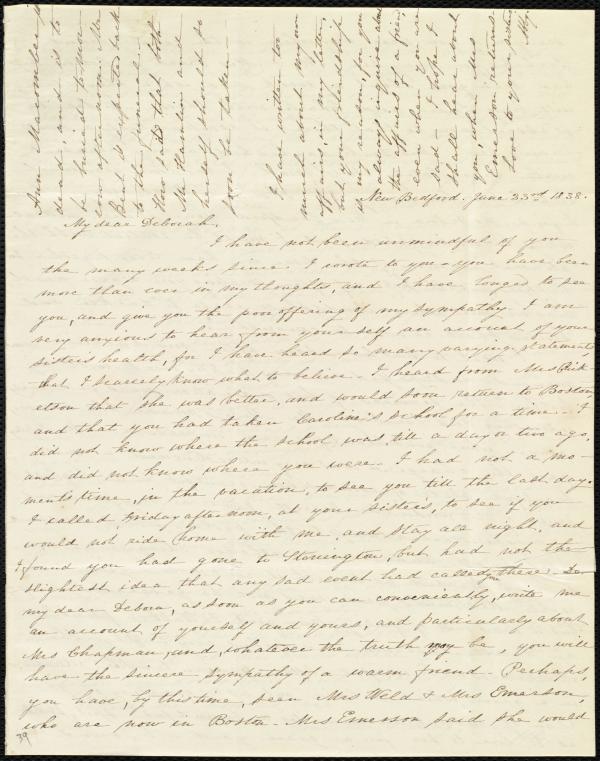 New Bedford. June 23rd 1838.
My dear Deborah,
I have not been unmindful of you
the many weeks since I wrote to you - you have been
more than ever in my thoughts, and I have longed to see
you, and give you the poor offering of my sympathy. I am
very anxious to hear from yourself an account of your
sister's health, for I have heard so many varying statements
that I scarsely know what to believe. I heard from Mrs Rick-
etson that she was better, and would soon return to Boston,
and that you had taken Caroline's school for a time. I
did not know where the school was, till a day or two ago,
and did not know where you were. I had not a mo-
ment's time, in the vacation, to see you till the last day.
I called Friday afternoon, at your sister's, to see if you
would not ride home with me and stay all night, and
I found you had gone to Stonington, but had not the
slightest idea that any sad event had called you there. Do
my dear Debora, as soon as you can conveniently, write me
an account of yourself and yours, and particularly about
Mrs Chapman, and, whatever the truth may be, you will
have the sincere sympathy of a warm friend. Perhaps,
you have, by this time, seen Mrs Weld & Mrs Emerson,
who are now in Boston. Mrs Emerson said she would
39
Ann Macomber is
dead, and is to
be buried to-mor-
row afternoon. Mr
Bent is expected back
to the funeral.
How sad that both
Mr Hamlin and
herself should so
soon be taken
I have written too
much about my own
affairs, in my letter,
but your friendship
is my reason, for you
always inquire about
the affairs of a friend
even when you are
sad - I hope I
shall hear about
you, when Mrs
Emerson returns
Love to your sister